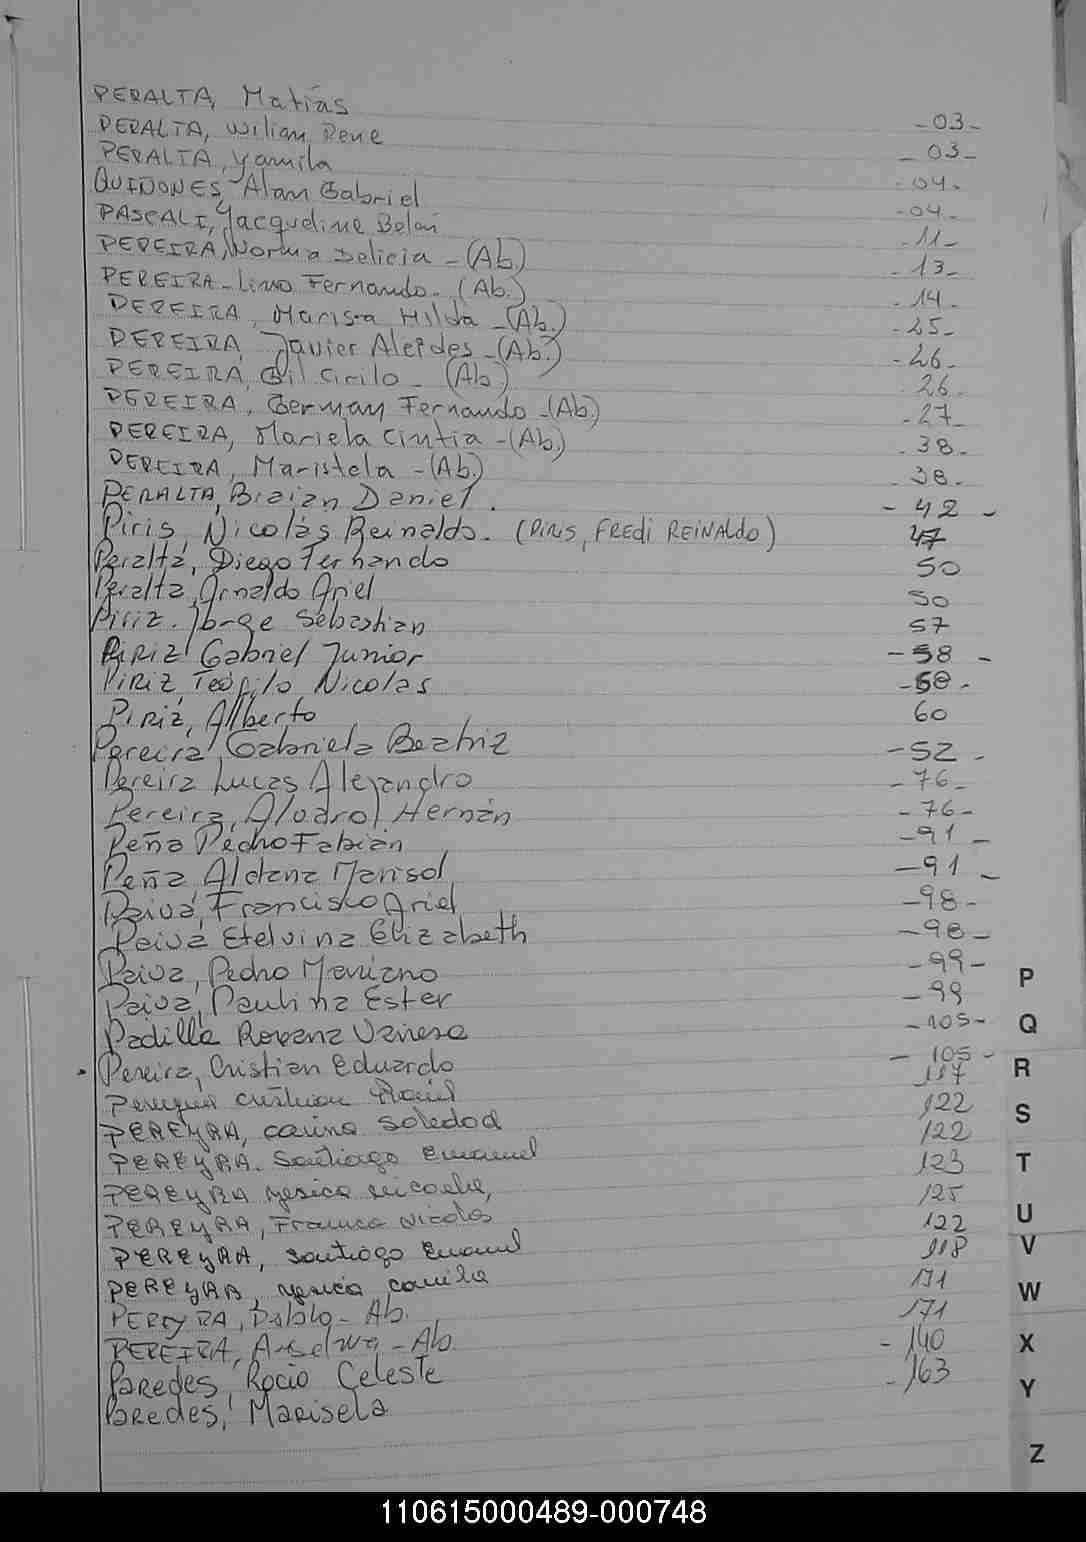 PERALTA, Matías -03-
PERALTA, Wilian Rene -03-
PERALTA, Yamila -04-
QUIÑONES, Alan Gabriel -04-
PASCALI, Jacqueline Belén -11-
PEREIRA, Norma Delicia -(Ab.) -13-
PEREIRA - Lino Fernando - (Ab.) -14-
PEREIRA, Marisa Hilda -(Ab.) -25-
PEREIRA, Javier Alcides -(Ab.) -26-
PEREIRA, Gil Cirilo - (Ab.) 26-
PEREIRA, German Fernando -(Ab.) -27-
PEREIRA, Mariela Cintia -(Ab.) -38-
PEREIRA, Maristela -(Ab.) -38-
PERALTA, Braian Daniel. -42-
Piris, Nicolás Reinaldo. (PIRIS, FREDI REINALDO) 47
Peralta, Diego Fernando 50
Peralta, Arnaldo Ariel 50
Piriz. Jorge Sebastian 57
PIRIZ Gabriel Junior -58-
PIRIZ Teofilo Nicolas -58-
Piriz, Alberto 60
Pereira, Gabriela Beatriz -52-
Pereira Lucas Alejandro -76-
Pereira, Alvaro Hernán -76-
Peña Pedro Fabian -91-
Peña, Aldana Marisol -91-
Paiva, Francisco Ariel -98-
Paiva Etelvina Elizabeth -98-
Paiva, Pedro Mariano -99-
Paiva, Paulina Ester -99
Padilla Roxana Vanesa -105-
Pereira, Cristian Eduardo -105-
cristian 117
PEREYRA, carina Soledad 122
PEREYRA. Santiago Emanuel 122
PEREYRA Yesica 123
PEREYRA, Franco Nicolas 125
PEREYRA, Santiago Emanuel 122
PEREYRA, Yesica camila 118
PEREYRA, Pablo - Ab. 171
PEREIRA, Anselma - Ab. 171
Paredes, Rocio Celeste -140
Paredes, Marisela -163
P
Q
R
S
T
U
V
W
X
Y
Z
110615000489-000748